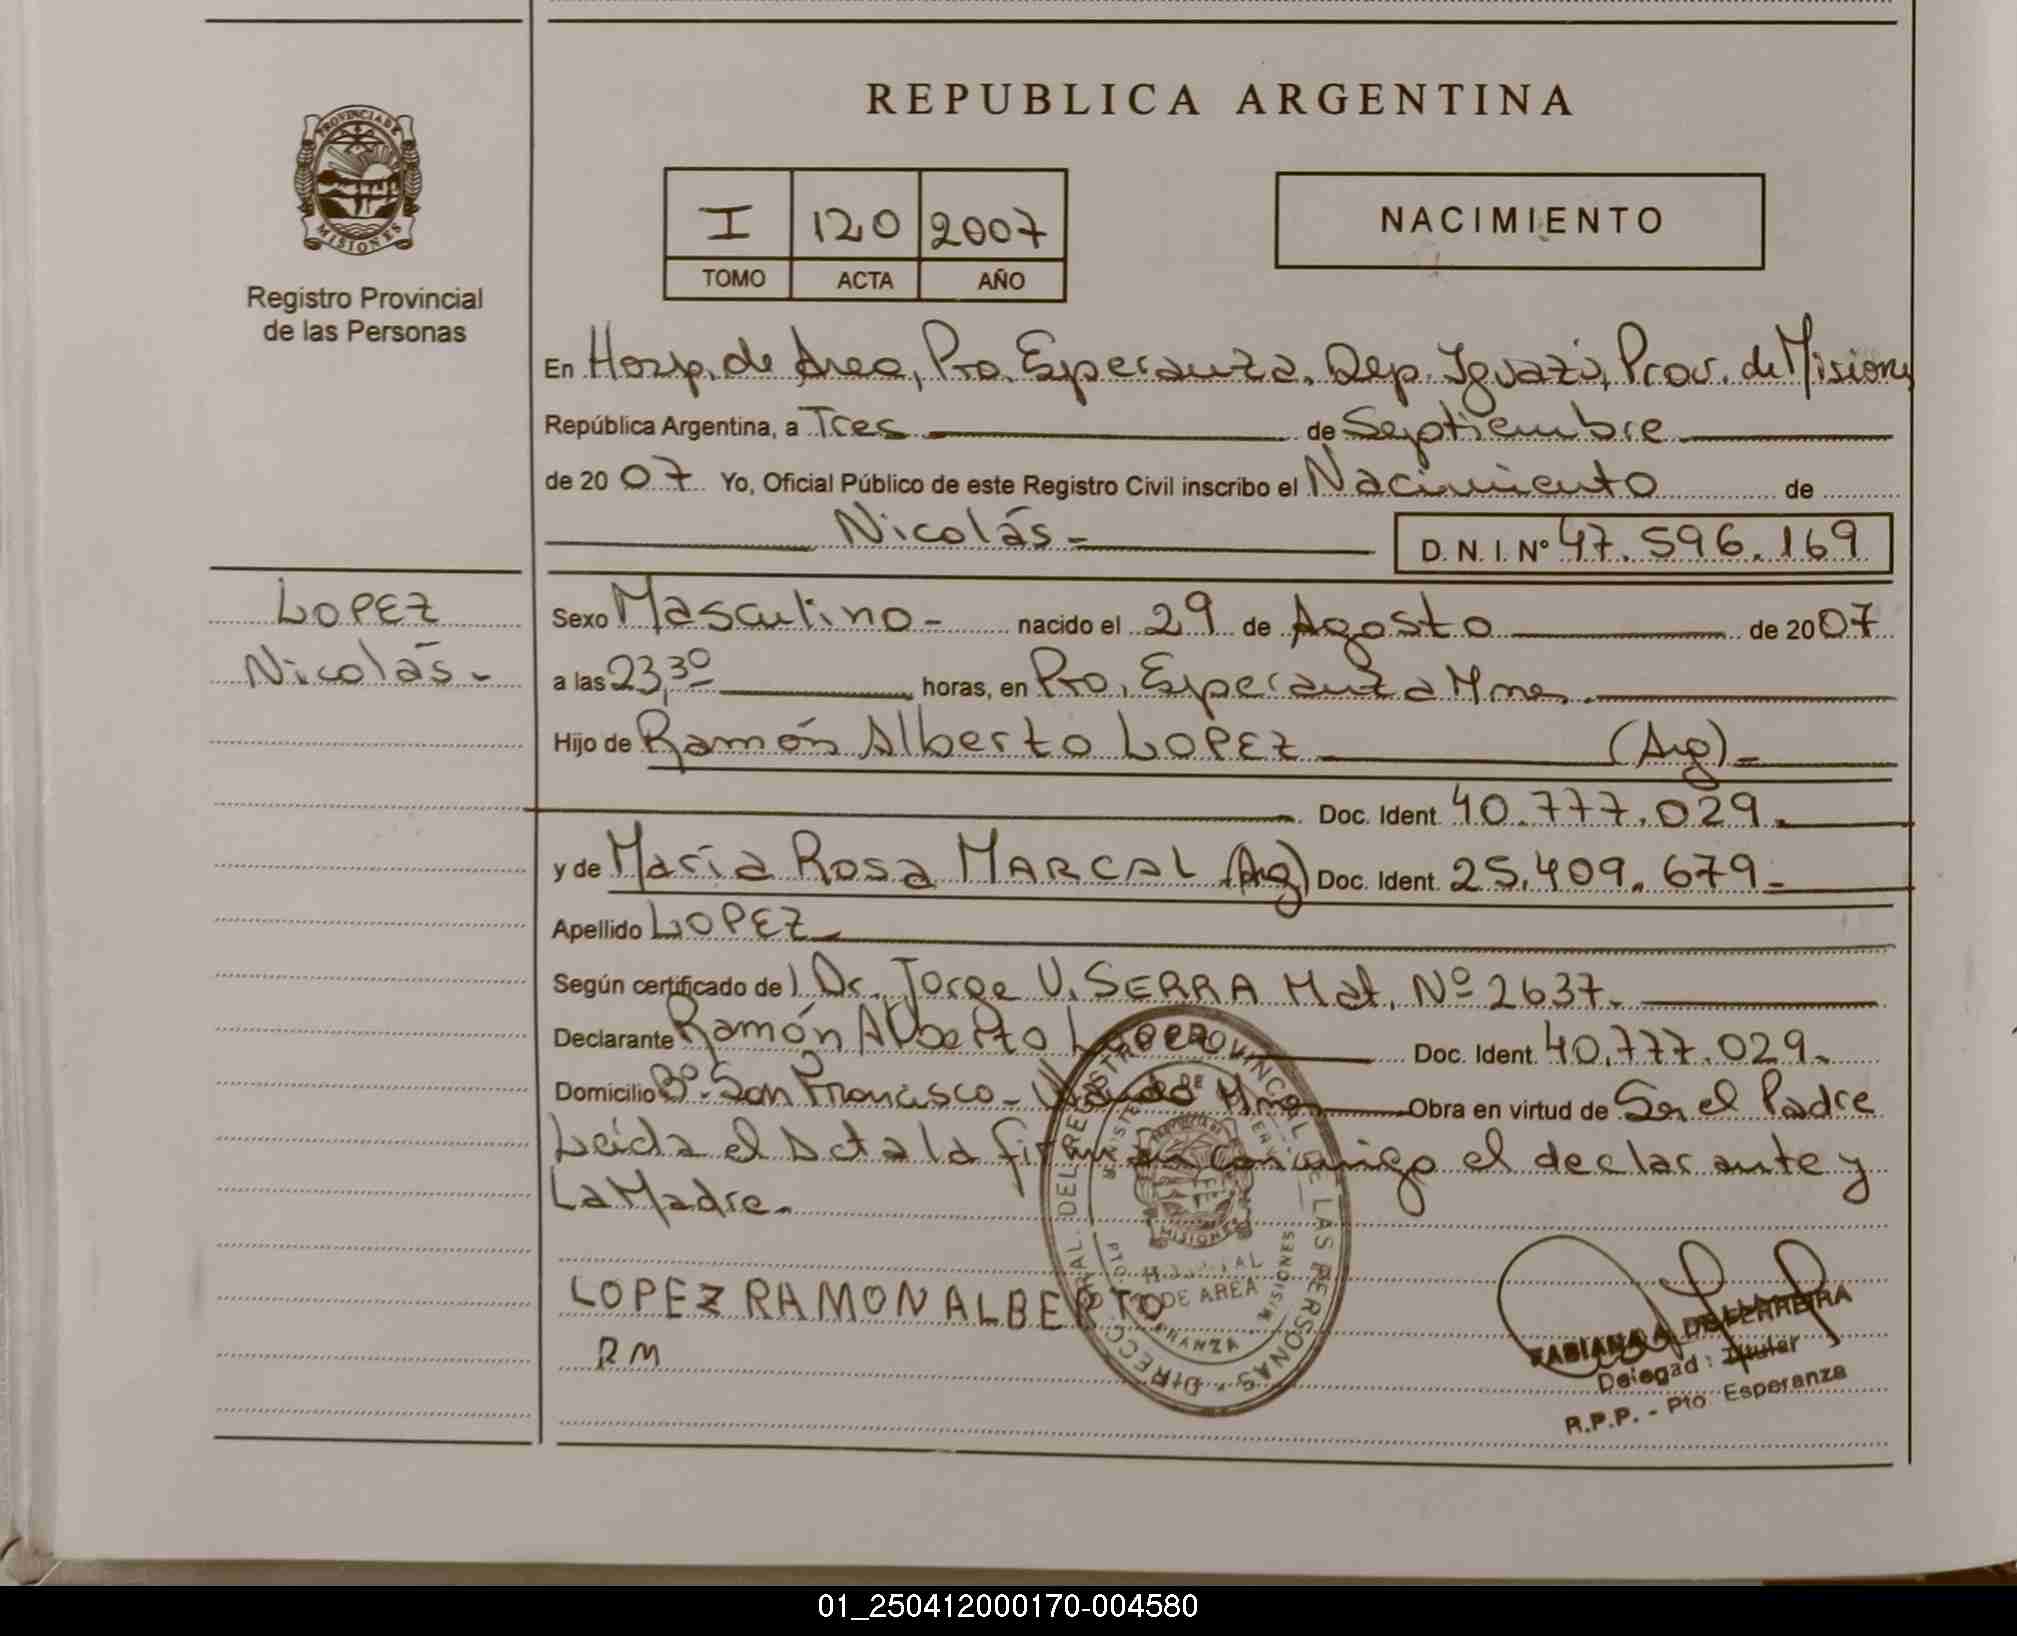 REPUBLICA ARGENTINA
PROVINCIA DE
MISIONES
Registro Provincial
de las Personas
I 120 2007
TOMO ACTA AÑO
NACIMIENTO
En Hosp. de Area, Pto. Esperanza. Dep. Iguazú, Prov. de Misiones
República Argentina, a Tres de Septiembre
de 2007 Yo, Oficial Público de este Registro Civil inscribo el Nacimiento de
Nicolás-
D. N. I. Nº 47.596.169
LOPEZ
Nicolás-
Sexo Masculino- nacido el 29 de Agosto de 2007
a las 23,30 horas, en Pto. Esperanza Mnes.
Hijo de Ramón Alberto LOPEZ (Arg)-
Doc. Ident. 40.777.029.
y de María Rosa MARCAL (Arg) Doc. Ident. 25.409.679-
Apellido LOPEZ
Según certificado de Dr. Jorge U. SERRA Mat. Nº 2637.
Declarante Ramón Alberto Lopez Doc. Ident. 40.777.029.
Domicilio Bº. San Francisco- Wanda Mnes Obra en virtud de Ser el Padre
Leída el Acta la firman conmigo el declarante y
La Madre.
LOPEZ RAMON ALBERTO
RM
DIRECC. GRAL. DEL REGISTRO PROVINCIAL DE LAS PERSONAS
MISIONES
HOSPITAL
DE AREA
MISIONES
FABIANA A. DE FERREIRA
Delegada Titular
R.P.P. - Pto Esperanza
01_250412000170-004580